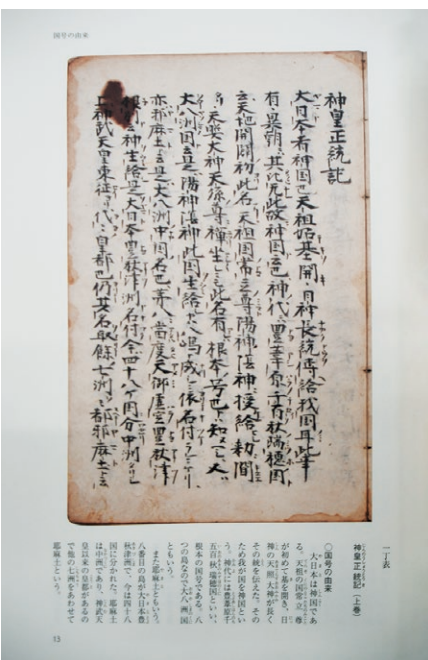 国号の由来
神皇正統記
大日本者神国也天祖始基開日神長統傳給我国耳此事
有異朝其比无此故神国云也神代豊葦原千五百秋瑞穂国
云天地開闢初此名天祖国常立尊陽神陰神授給勅聞
大八洲国云是陽神陰神此国生給
亦耶麻土云是大八洲中国名也第八當度天御虚空豊秋津
神生給是大日本豊秋津洲名付今四十八ケ国分中洲
神武天皇東征代皇都也仍其名取餘七洲都耶麻土云
一丁表
神皇正統記(上巻)
〇国号の由来
大日本は神国であ
る。天祖の国常立尊
が初めて基を開き、日
神の天照大神が長く
その統を伝えた。その
ため我が国を神国とい
う。神代には豊葦原千
五百秋瑞穂国といい、
根本の国号である。八
つの島なので大八洲国
ともいう。
また耶麻土ともいう。
八番目の島が大日本豊
秋津洲で、今は四十八
国に分かれた。耶麻土
は中洲であり、神武天
皇以来の皇都があるの
で他の七洲をあわせて
耶麻土という。
13